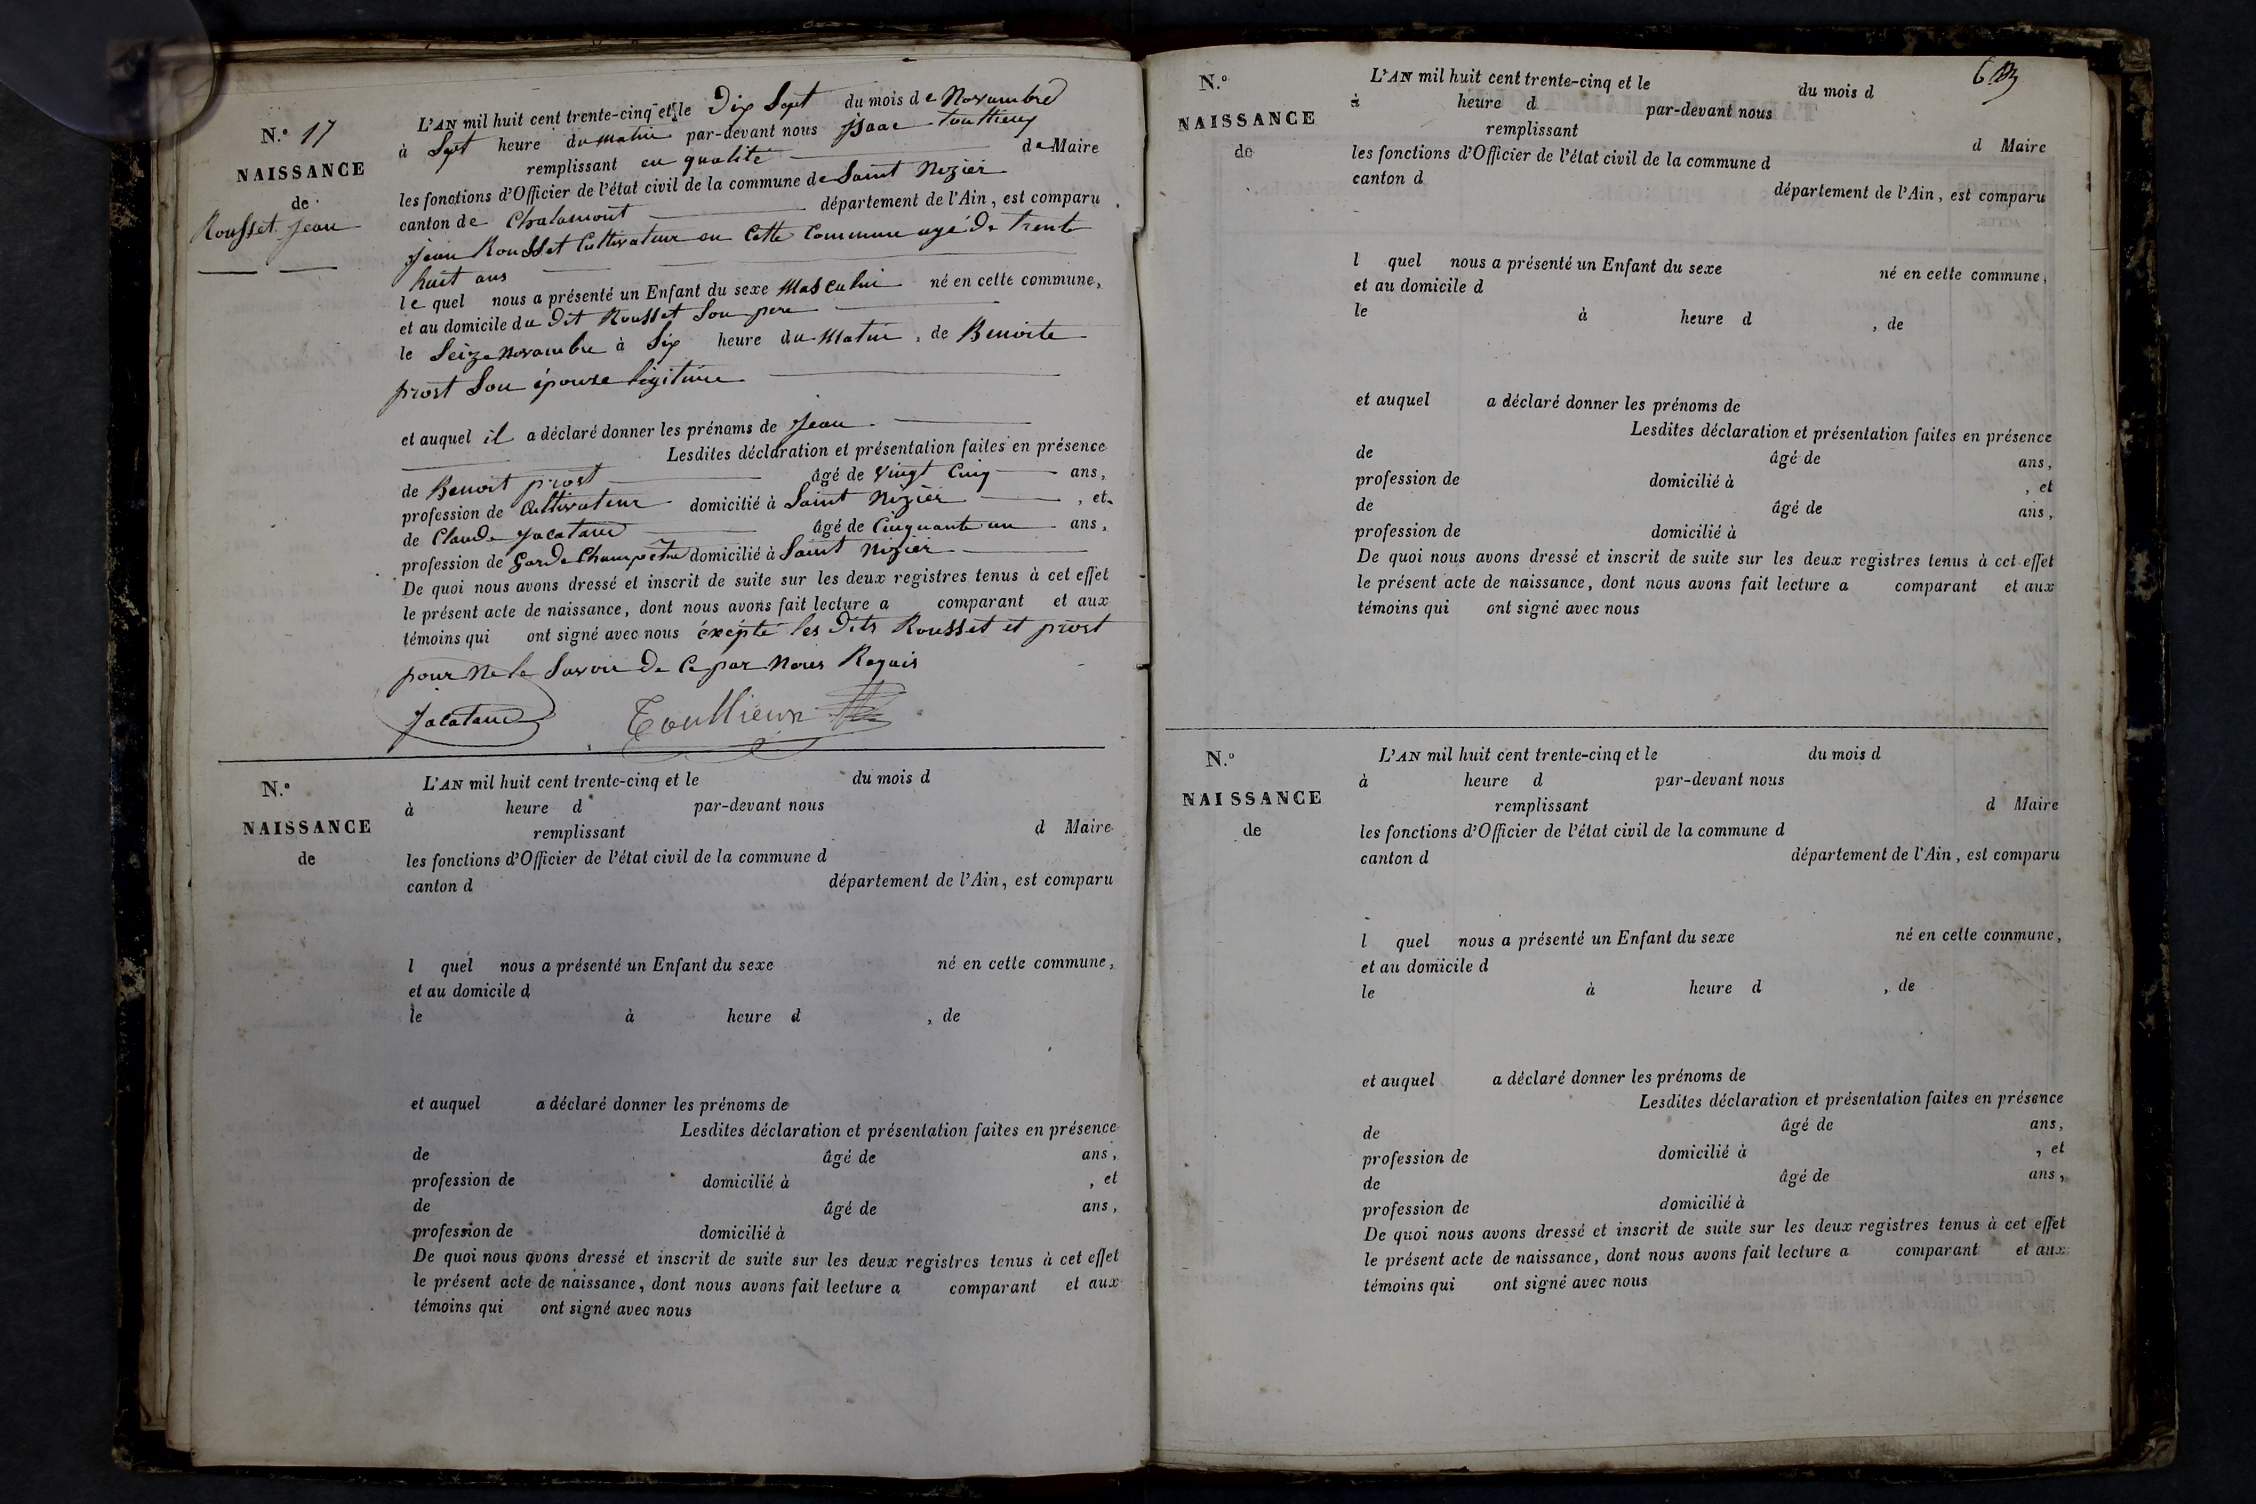 N.° 17
NAISSANCE
de
Rousset Jean
L'AN mil huit cent trente-cinq et le Dix Sept du mois de Novambre
à Sept heure du matin par-devant nous isaac Toullieux
remplissant en qualité de Maire
les fonctions d'Officier de l'état civil de la commune de Saint Nizier
canton de Chalamont département de l'Ain, est comparu
jean Rousset Cultivateur en Cette Commune agé De trente
huit ans
le quel nous a présenté un Enfant du sexe Masculin né en cette commune,
et au domicile du Dit Rousset Son pere
le Seize Novambre à Six heure du Matin, de Benoite
prost Son épouse légitime
et auquel il a déclaré donner les prénoms de Jean
Lesdites déclaration et présentation faites en présence
de Benoit prost âgé de vingt Cinq ans,
profession de Cultivateur domicilié à Saint Nizier, et
de Claude jacataud âgé de Cinquante un ans,
profession de Garde Champêtre domicilié à Saint Nizier
De quoi nous avons dressé et inscrit de suite sur les deux registres tenus à cet effet
le présent acte de naissance, dont nous avons fait lecture a comparant et aux
témoins qui ont signé avec nous éxépté les Dits Rousset et prost
pour Ne le Savoir De Ce par Nous Requis
Jacataud Toullieux
N.°
NAISSANCE
de
L'AN mil huit cent trente-cinq et le du mois d
à heure d par-devant nous
remplissant d Maire
les fonctions d'Officier de l'état civil de la commune d
canton d département de l'Ain, est comparu
l quel nous a présenté un Enfant du sexe né en cette commune,
et au domicile d
le à heure d , de
et auquel a déclaré donner les prénoms de
Lesdites déclaration et présentation faites en présence
de âgé de ans,
profession de domicilié à , et
de âgé de ans,
profession de domicilié à
De quoi nous avons dressé et inscrit de suite sur les deux registres tenus à cet effet
le présent acte de naissance, dont nous avons fait lecture a comparant et aux
témoins qui ont signé avec nous
6
N.°
NAISSANCE
de
L'AN mil huit cent trente-cinq et le du mois d
à heure d par-devant nous
remplissant d Maire
les fonctions d'Officier de l'état civil de la commune d
canton d département de l'Ain, est comparu
l quel nous a présenté un Enfant du sexe né en cette commune,
et au domicile d
le à heure d , de
et auquel a déclaré donner les prénoms de
Lesdites déclaration et présentation faites en présence
de âgé de ans,
profession de domicilié à , et
de âgé de ans,
profession de domicilié à
De quoi nous avons dressé et inscrit de suite sur les deux registres tenus à cet effet
le présent acte de naissance, dont nous avons fait lecture a comparant et aux
témoins qui ont signé avec nous
N.°
NAISSANCE
de
L'AN mil huit cent trente-cinq et le du mois d
à heure d par-devant nous
remplissant d Maire
les fonctions d'Officier de l'état civil de la commune d
canton d département de l'Ain, est comparu
l quel nous a présenté un Enfant du sexe né en cette commune,
et au domicile d
le à heure d , de
et auquel a déclaré donner les prénoms de
Lesdites déclaration et présentation faites en présence
de âgé de ans,
profession de domicilié à , et
de âgé de ans,
profession de domicilié à
De quoi nous avons dressé et inscrit de suite sur les deux registres tenus à cet effet
le présent acte de naissance, dont nous avons fait lecture a comparant et aux
témoins qui ont signé avec nous